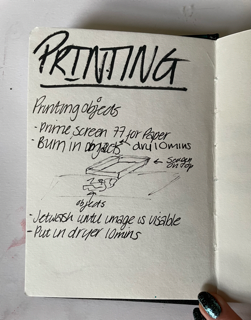 PRINTING
Printing objects
- Prime screen 77 for Paper
- Burn in objects dry 10mins
← Screen
on top
objects
- Jetwash until image is visible
- Put in dryer 10mins